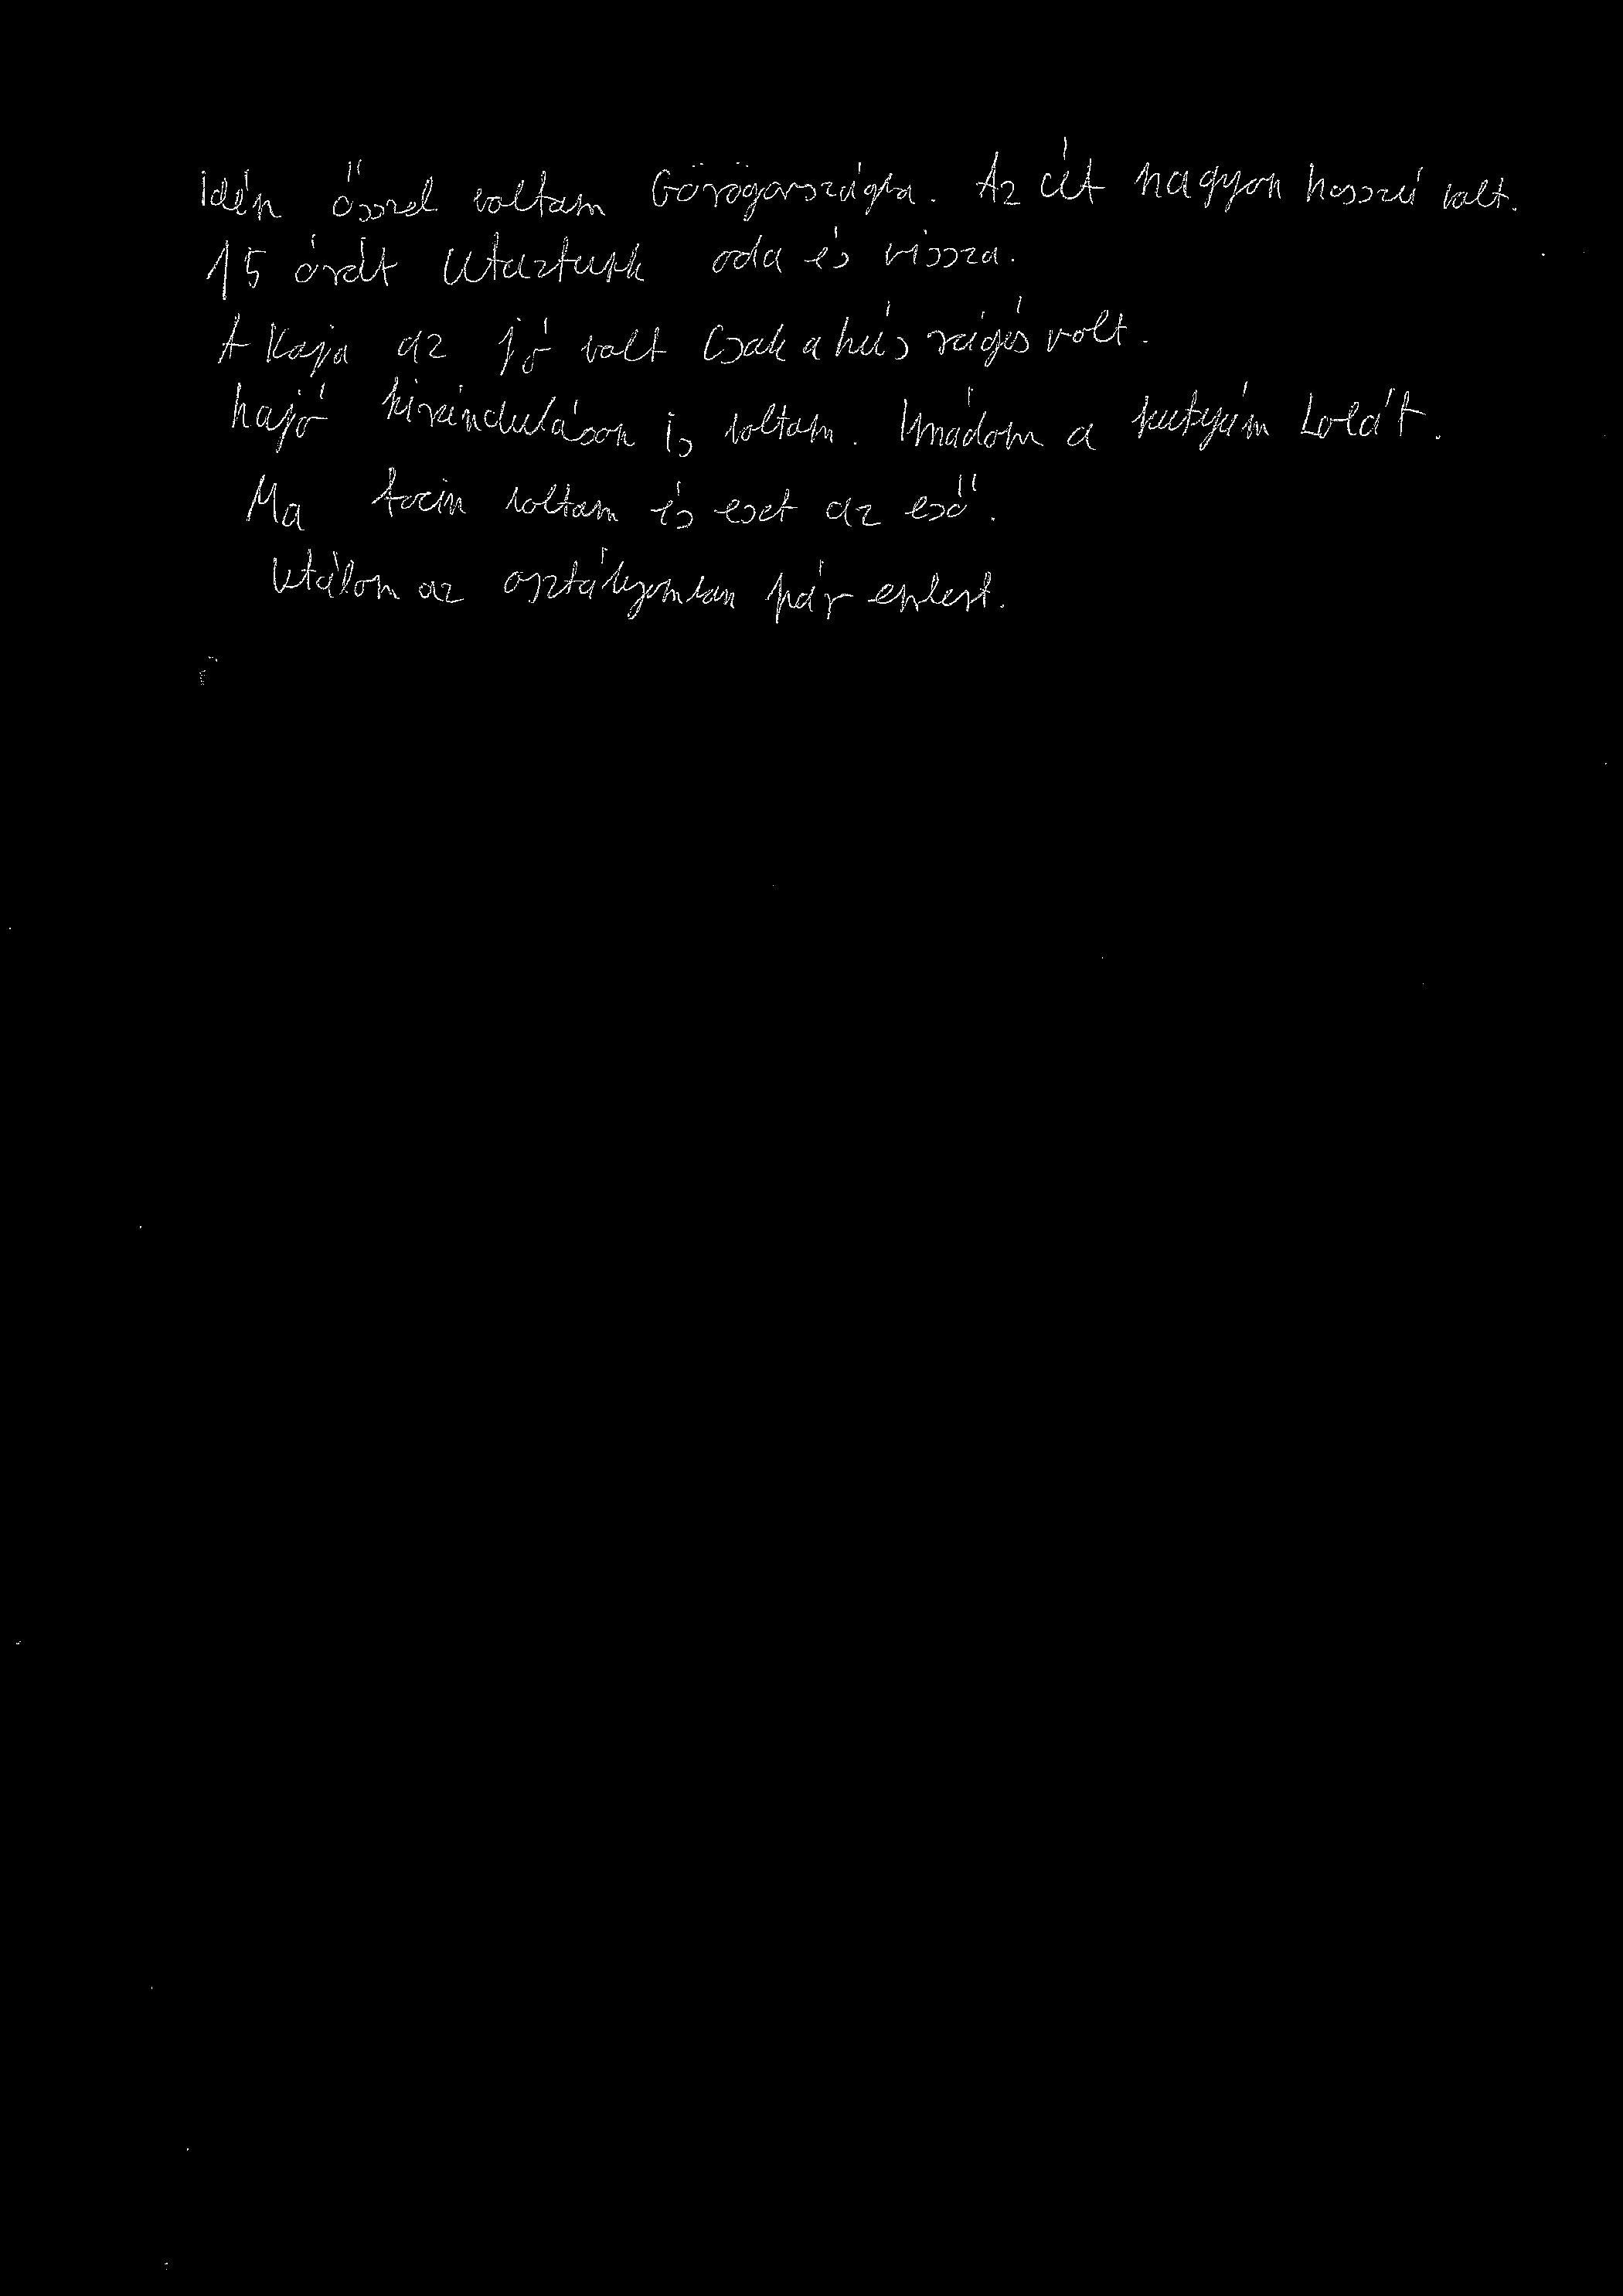 Idén ősszel voltam Görögországba. Az út nagyon hosszú volt.
15 órát utaztunk oda és vissza.
A kaja az jó volt csak a hús rágós volt.
hajó kiránduláson is voltam. Imádom a kutyám Lolát.
Ma focin voltam és eset az eső.
Utálom az osztályomban pár embert.